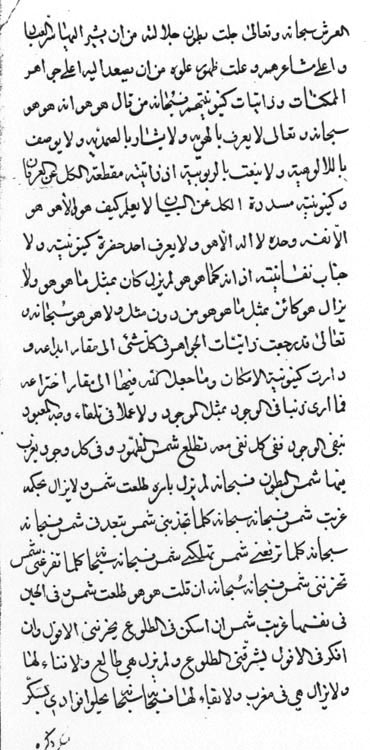 العرش سبحانه وتعالى جلت بطون جلالته من ان يشير اليها
واعلى مشاعرهم وعلت ظهور علوه من ان يصعد اليه اعلى جواهر
الممكنات وذاتيات كينونيتهم فسبحانه من قال هو هو انه هو هو
سبحانه وتعالى لا يعرف بالهوية ولا يشار بالصمدية ولا يوصف
باللالوهية ولا ينعت بالربوبية اذ ذاتيته مقطعة الكل عن العرفان
وكينونيته مسددة الكل عن البيان لا يعلم كيف هو الا هو هو
وحده لا اله الا هو ولا يعرف احد حضرة كينونيته ولا
جناب نفسانيته اذ انه كما هو هو لم يزل كان بمثل ما هو هو ولا
يزال هو كائن بمثل ما هو هو من دون مثل ولا هو هو سبحانه و
تعالى قد رجعت ذاتيات الجواهر في كل شئ الى مقار ابداعه و
دارت كينونية الامكان وما جعل الله فيها الى مقار اختراعه
فما ارى ذنبا في الوجود بمثل الوجود ولا عملا في تلقاء وجه المعبود
نفي الوجود ففي كل نفي معه تطلع شمس الظهور وفي كل وجود يغرب
منها شمس البطون فسبحانه لم يزل بامره طلعت شمس ولا يزال بحكمه
غربت شمس فسبحانه سبحانه كلما تجذبني شمس تبعدني شمس فسبحانه
سبحانه كلما ترفعني شمس تملكني شمس فسبحانه سبحانه كلما تفرحني شمس
تحزنني شمس فسبحانه سبحانه ان قلت هو هو طلعت شمس في الحين
في نفسها غربت شمس ان اسكن في الطلوع يحزنني الافول وان
افكر في الافول يشرقني الطلوع ولم يزل هي طالع ولا فناء لها
ولا يزال هي في مغرب ولا بقاء لها فسبحانه سبحانه يحلوا فؤادي بذكر